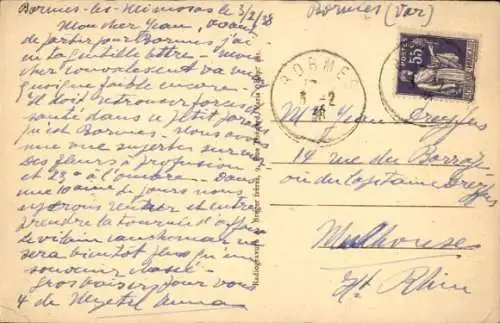 Bormes-les-Mimosas le 3/2/38
Mon cher Jean, avant
de partir pour Bormes j'ai
eu ta gentille lettre - mon
cher convalescent va mieux
quoique faible encore - 
il doit retrouver forces et
santé dans ce petit paradis
qu'est Bormes - Nous avons
une vue superbe sur mer
Des fleurs à profusion
et 23° à l'ombre - Dans
une 10aine de jours nous
espérons rentrer et entre-
prendre la tournée d'affaires
le vilain cauchemar ne
sera bientôt plus qu'un
souvenir
Gros baisers pour vous
4 de
Bormes (Var)
BORMES
2
38
POSTES
55c
Mr Jean Dreyfus
14 rue du
ou du Capitaine Dreyfus
Mulhouse
Ht Rhin